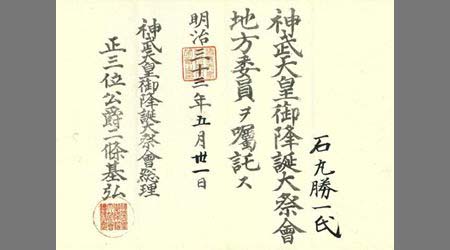 石丸勝一氏
神武天皇御降誕大祭會
地方委員ヲ囑託ス
明治三十三年五月丗一日
神武天皇御降誕大祭會総理
正三位公爵二條基弘